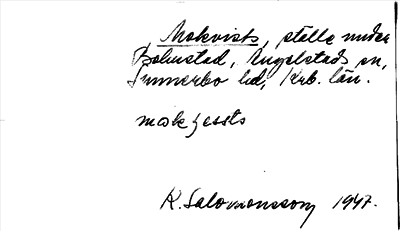 Mokvists, ställe under
Bolmstad, Angelstads sn,
Sunnerbo hd, Krb. län.
mok
K. Salomonsson 1947.